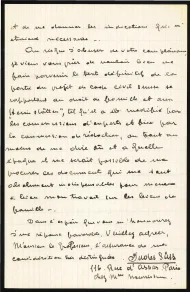 et de me donner les indications qui
me sont nécessaires.
On risque d'abuser de votre complaisance
je viens vous prier de vouloir bien me
faire parvenir le texte définitif de la
partie du projet de code civil suisse se
rapportant au droit de famille et aux
tel qu'il a été modifié par
les commissions d'experts et par
la commission de rédaction, ou tout au
moins de me dire où et à quelle
époque il me serait possible de me
procurer les documents qui me sont
absolument indispensables pour mener
à bien mon travail sur les biens de
famille.
Dans l'espoir que vous m'honorerez
d'une réponse favorable, Veuillez agréer,
Monsieur le Professeur, l'assurance de ma
considération très distinguée.
116 Rue d'Assas Paris